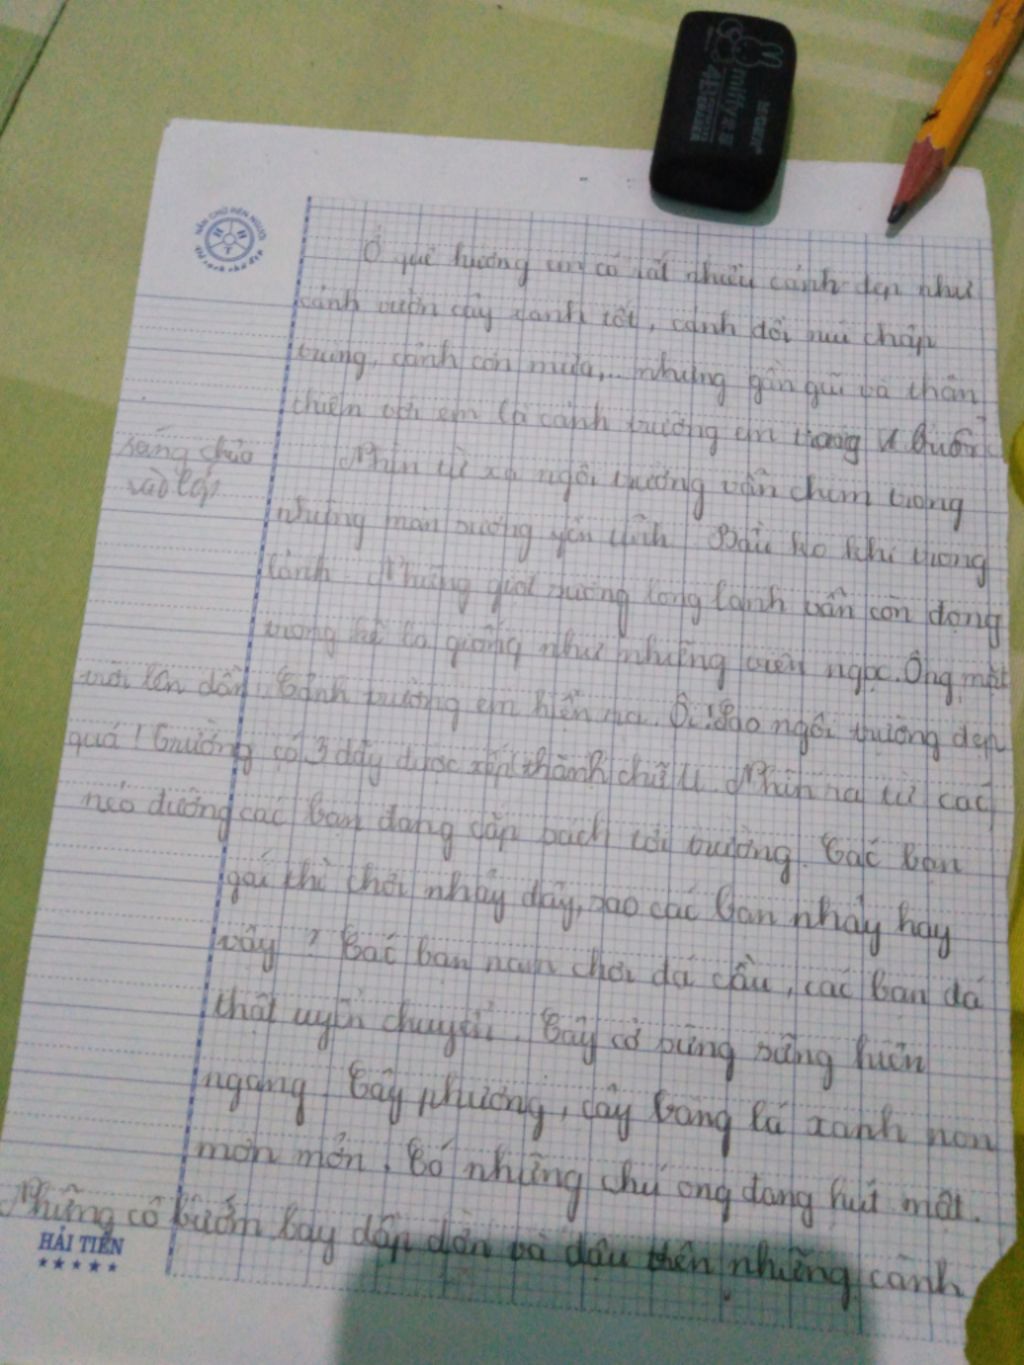 miffy
NẮN CHỮ RÈN NGƯỜI
Vở sạch chữ đẹp
Ở quê hương em có rất nhiều cảnh đẹp như
cảnh vườn cây xanh tốt, cảnh đồi núi chập
trùng, cảnh cơn mưa,... nhưng gần gũi và thân
thiện với em là cảnh trường em trong 1 buổi
sáng chưa
vào lớp
Nhìn từ xa ngôi trường vẫn chìm trong
những màn sương yên tĩnh. Bầu ko khí trong
lành. Những giọt sương long lanh vẫn còn đọng
trong kẽ lá giống như những viên ngọc. Ông mặt
trời lên dần. Cảnh trường em hiện ra. Ôi! Sao ngôi trường đẹp
quá! Trường có 3 dãy được xếp thành chữ U. Nhìn ra từ các
nẻo đường các bạn đang cắp sách tới trường. Các bạn
gái thì chơi nhảy dây, sao các bạn nhảy hay
vậy? Các bạn nam chơi đá cầu, các bạn đá
thật uyển chuyển. Cây cờ sừng sững hiên
ngang. Cây phượng, cây bàng lá xanh non
mơn mởn. Có những chú ong đang hút mật.
Những cô bướm bay dập dờn và đậu trên những cành
HẢI TIẾN